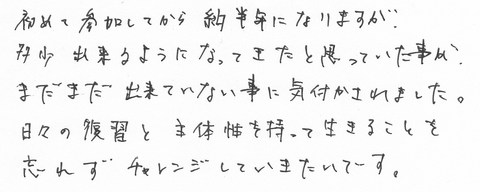 初めて参加してから約半年になりますが、
多少出来るようになってきたと思っていた事が、
まだまだ出来ていない事に気付かされました。
日々の復習と主体性を持って生きることを
忘れずチャレンジしていきたいです。